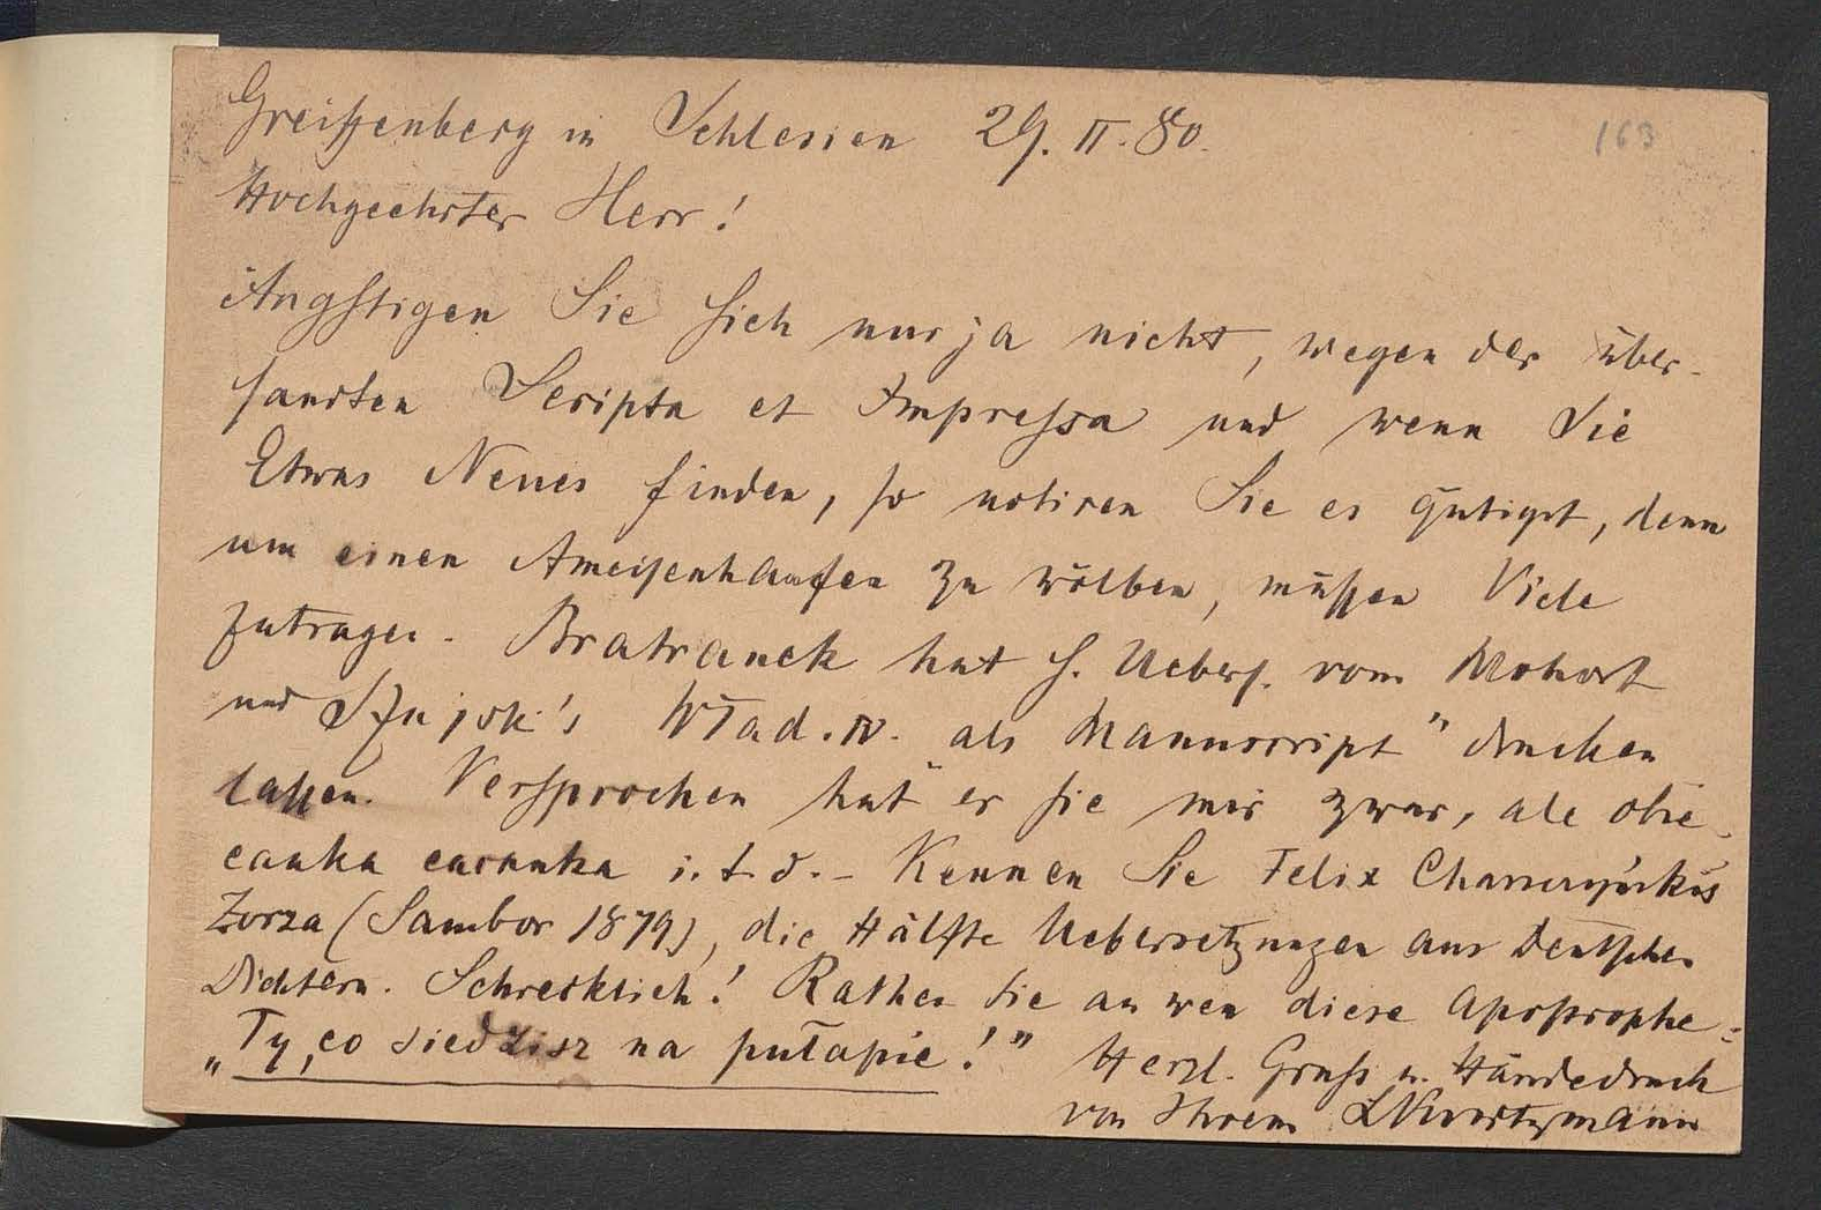 Greiffenberg in Schlesien 29. II. 80.
163
Hochgeehrter Herr!
Ängstigen Sie sich nur ja nicht, wegen der über-
sandten Scripta et Impressa und wenn Sie
Etwas Neues finden, so notiren Sie es gütigst, denn
um einen Ameisenhaufen zu wölben, müssen Viele
zutragen. Bratranek hat s. Uebers. vom Mohort
und Szujski's Wład. IV. „als Manuscript" drucken
lassen. Versprochen hat er sie mir zwar, ale obie-
canka cacanka i. t. d. – Kennen Sie Felix
Zorza (Sambor 1879), die Hälfte Uebersetzungen aus Deutschen
Dichtern. Schrecklich! Rathen Sie an wen diese Apostrophe:
„Ty, co siedzisz na pułapie!" Herzl. Gruß u. Händedruck
von Ihrem LKurtzmann